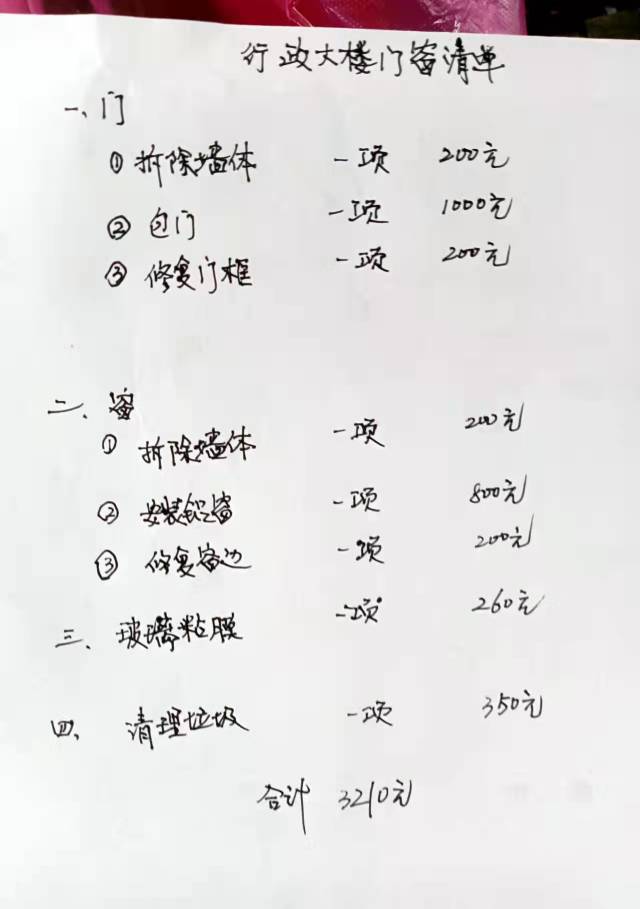 行政大楼门窗清单
一、门
① 拆除墙体 一项 200元
② 包门 一项 1000元
③ 修复门框 一项 200元
二、窗
① 拆除墙体 一项 200元
② 安装铝窗 一项 800元
③ 修复窗边 一项 200元
三、玻璃粘膜 一项 260元
四、清理垃圾 一项 350元
合计 3210元